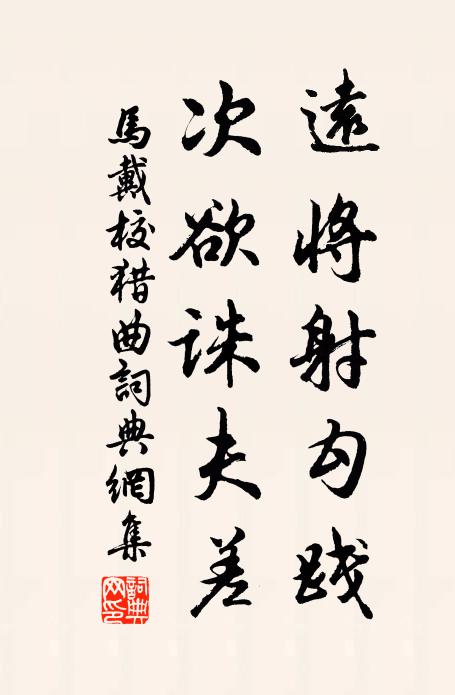 遠將射勾踐
次欲誅夫差
馬戴校猎曲詞典網集
詞典网印